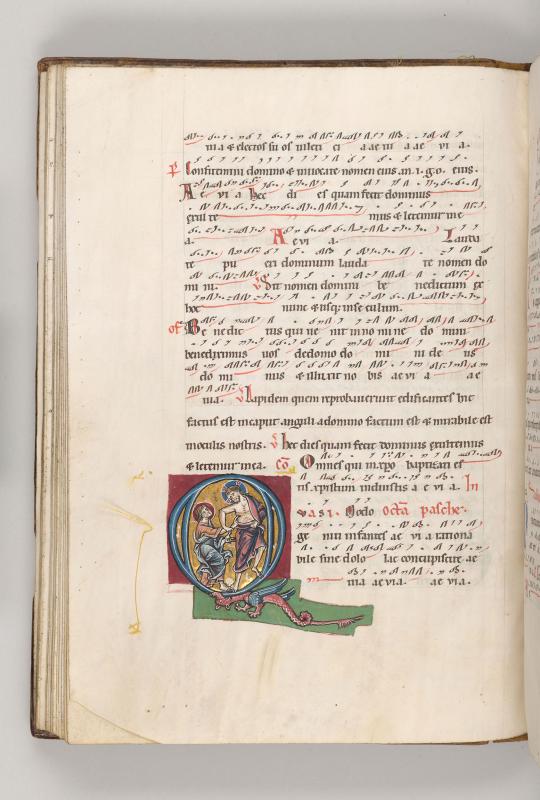 ma & electos su os
P Confitemini domino & invocate nomen eius. in. i. g. o. eius.
A e vi a hec di es quam fecit dominus
exul te mus & letemur in e
a. A e vi a. Lauda
te pu eri dominum lauda te nomen do
mi ni. V Sit nomen domini be nedictum ex
hoc nunc & usq; in se culum.
of Be ne dic tus qui ve nit in no mi ne do mini
benediximus vos de domo do mi ni de us
do mi nus & illuxit no bis ae vi a ae
via. V Lapidem quem reprobaverunt edificantes hic
factus est in caput anguli a domino factum est & mirabile est
in oculis nostris. V hec dies quam fecit dominus exultemus
& letemur in ea. Co Omnes qui in xpo baptizati es
tis xpistum induistis a e vi a. In
vasi. Modo octa pasche.
ge niti infantes ae vi a rationa
bile sine dolo lac concupiscite ae
via ae via. ae via.